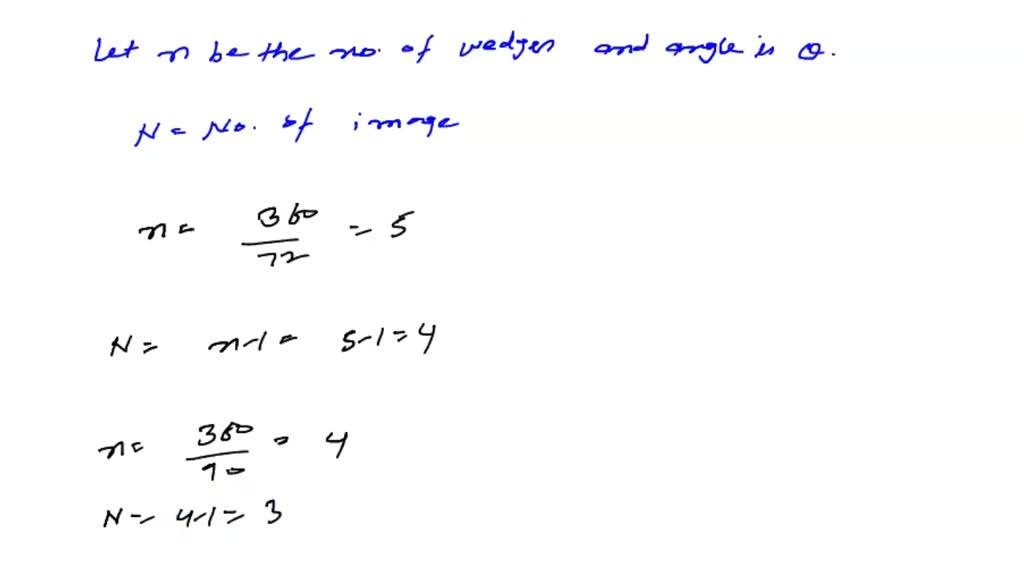 Let n be the no. of wedges and angle is θ.
N = No. of image
n = 360/72 = 5
N = n-1 = 5-1 = 4
n = 360/90 = 4
N = 4-1 = 3